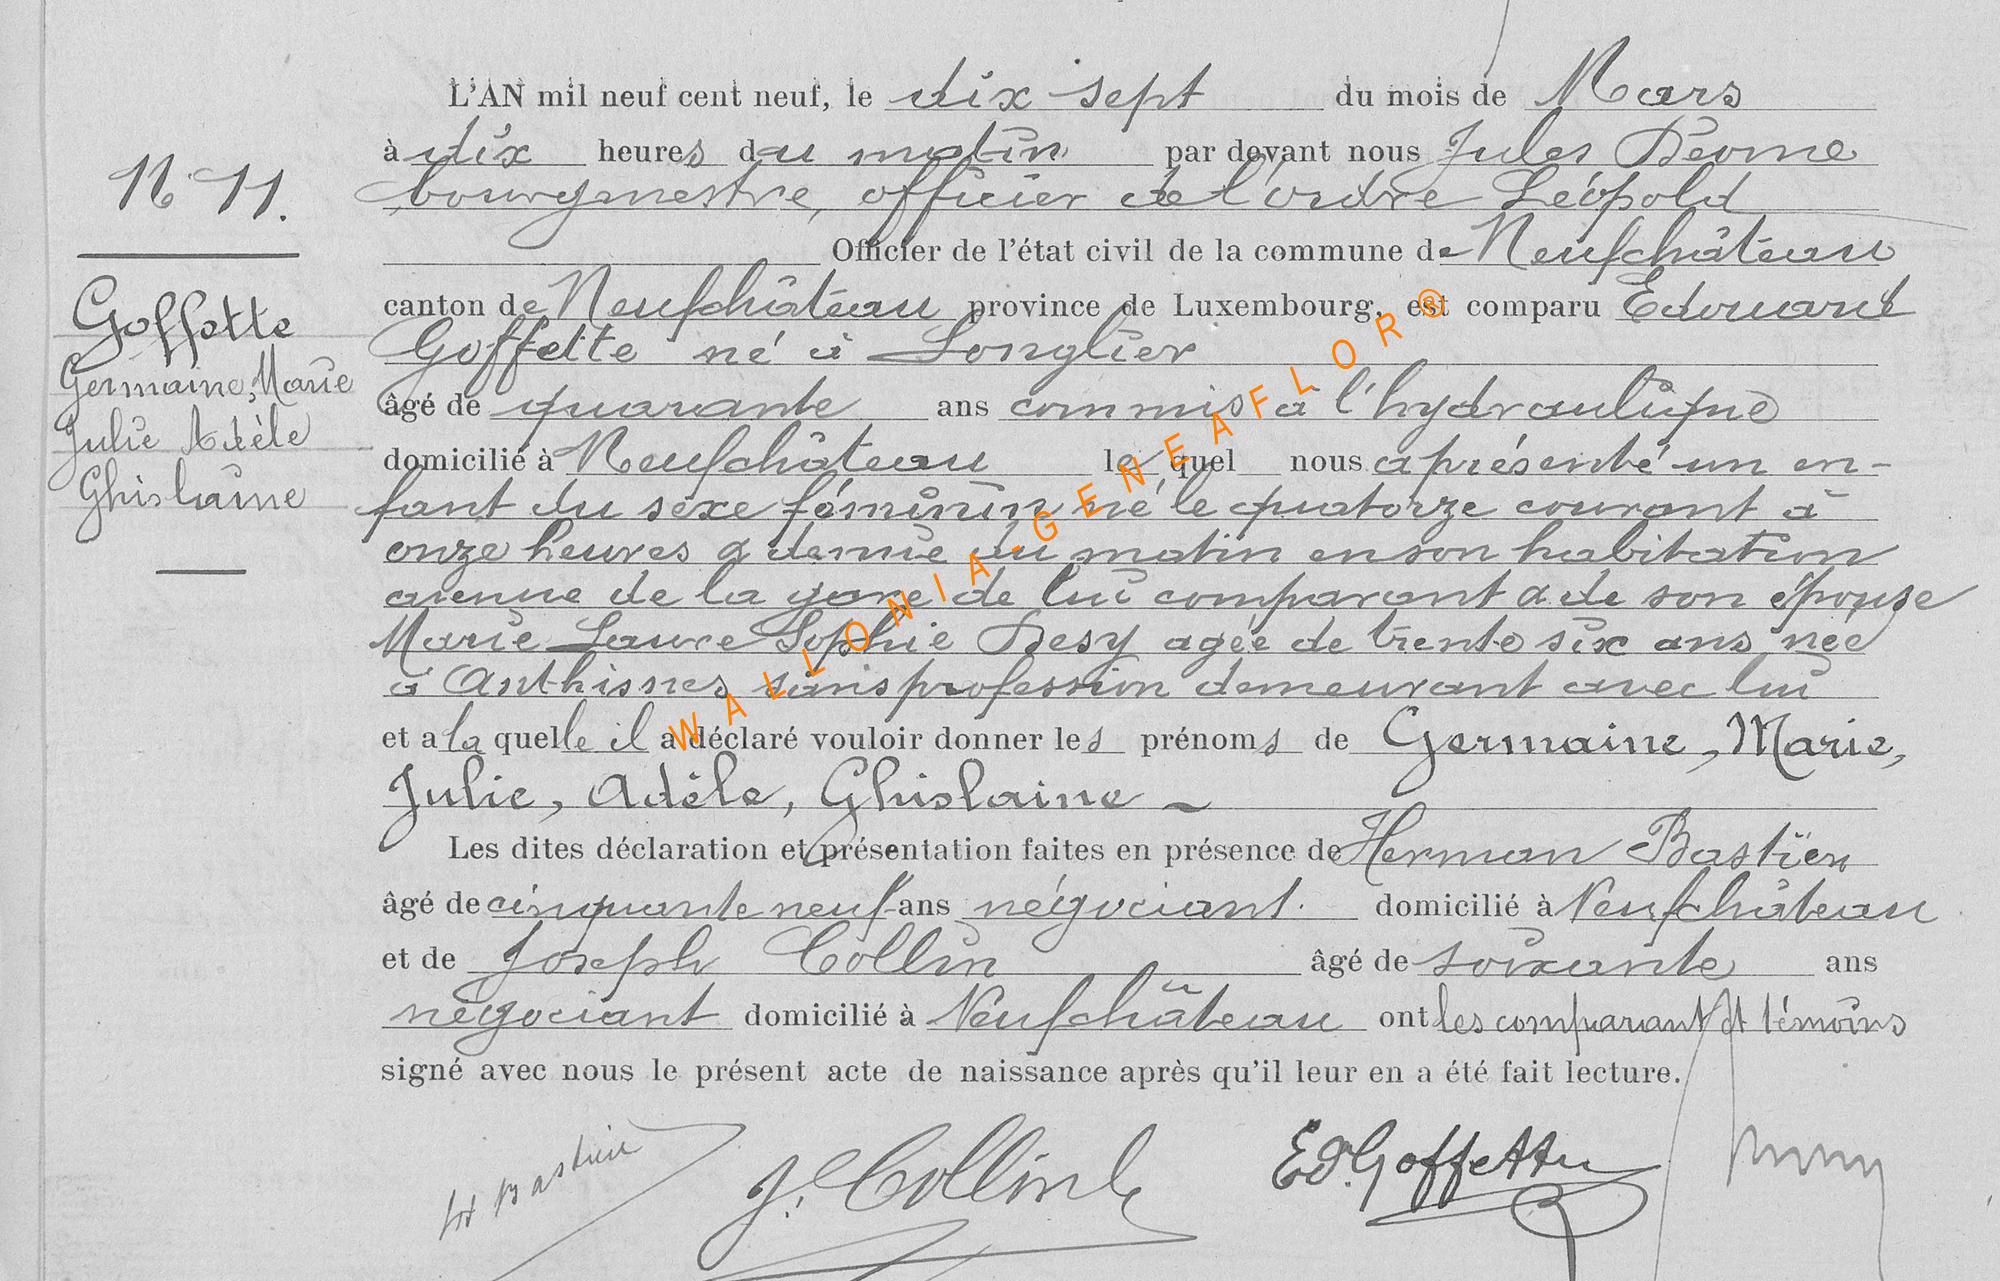 L'AN mil neuf cent neuf, le dix sept du mois de Mars
à dix heures du matin par devant nous Jules Déome
bourgmestre, officier de l'ordre Léopold
Officier de l'état civil de la commune de Neufchâteau
N° 11.
canton de Neufchâteau province de Luxembourg, est comparu Edouard
Goffette né à Longlier
âgé de quarante ans commis à l'hydraulique
domicilié à Neufchâteau le quel nous a présenté un en-
fant du sexe féminin né le quatorze courant à
onze heures & demie du matin en son habitation
avenue de la gare de lui comparant & de son épouse
Marie Laure Sophie Desy agée de trente six ans née
à Anthisnes sans profession demeurant avec lui
et a la quelle il a déclaré vouloir donner les prénoms de Germaine, Marie,
Julie, Adèle, Ghislaine
Goffette
Germaine, Marie
Julie Adèle
Ghislaine
Les dites déclaration et présentation faites en présence de Herman Bastien
âgé de cinquante neuf ans négociant. domicilié à Neufchâteau
et de Joseph Collin âgé de soixante ans
négociant domicilié à Neufchâteau ont les comparant et témoins
signé avec nous le présent acte de naissance après qu'il leur en a été fait lecture.
H Bastien
J. Collin
Ed. Goffette
WALLONIA-GENEAFLOR®